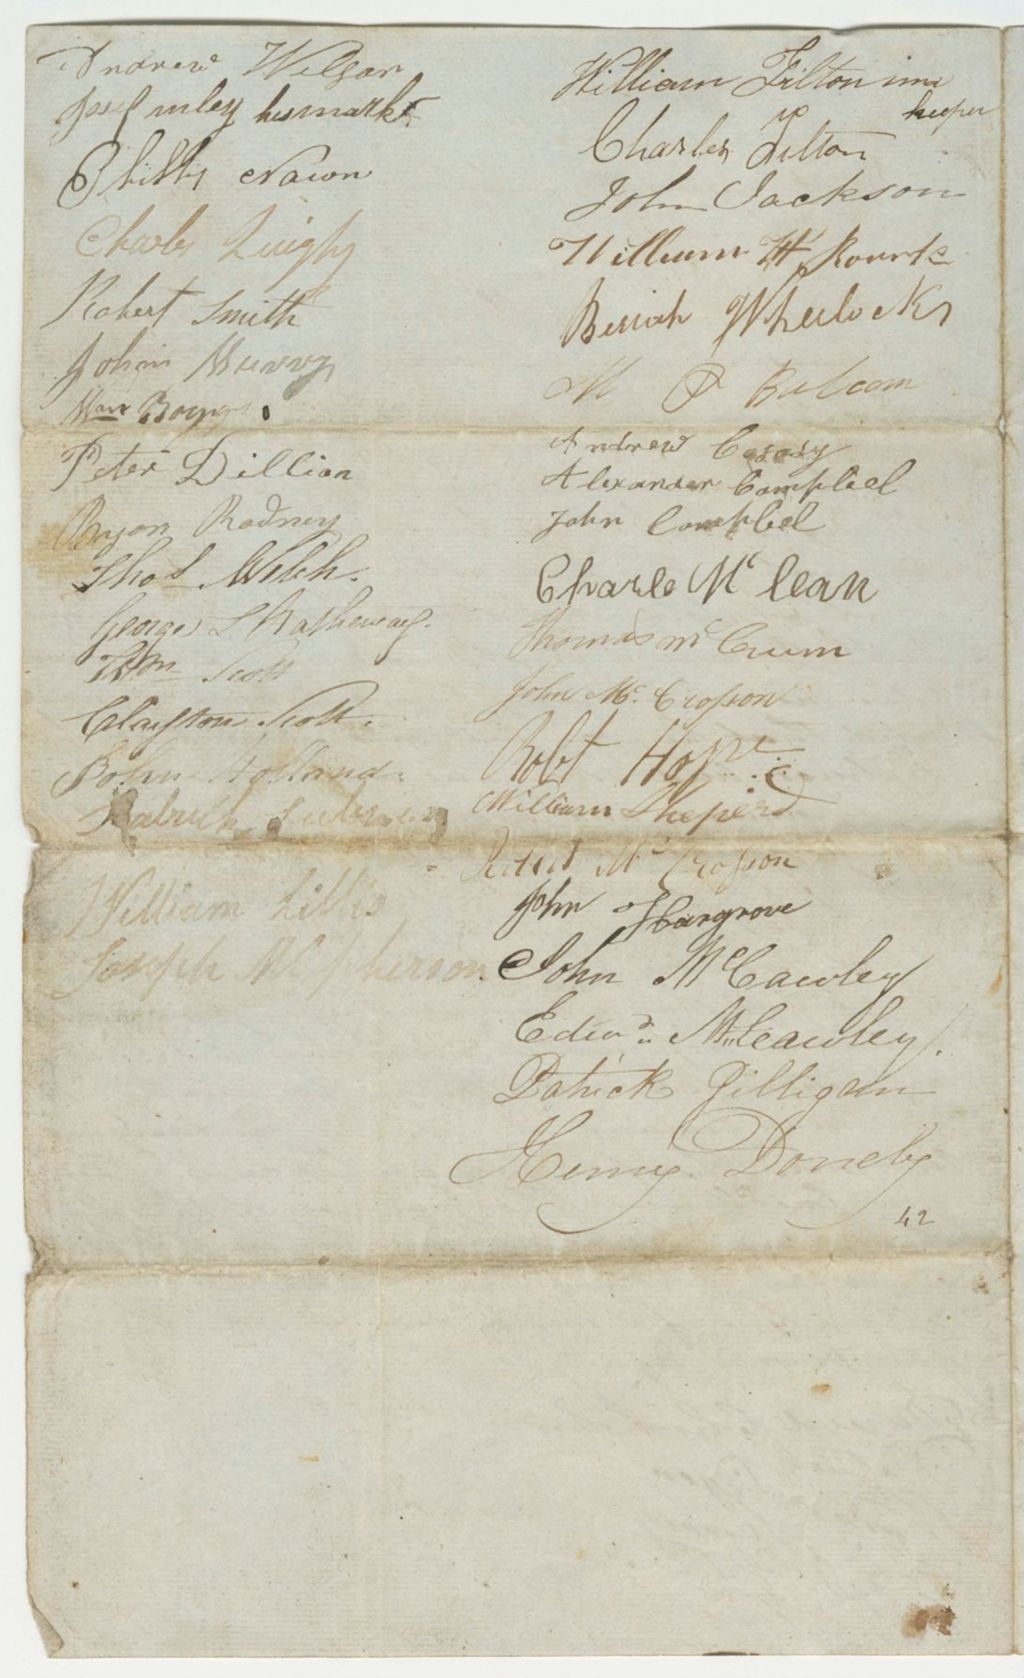 Andrew Wilson
Josef mley his mark x
Phillip Nawn
Charles Quigly
Robert Smith
John Murry
Wm
Peter Dillion
Bryon Rodney
Thos Welch.
George S Hathaway.
Wm Scott
Clayton Scott.
John Holland.
William Lillis
Joseph McPherson.
William Tilton inn
keeper
Charles Tilton
John Jackson
William W Rourke
Beriah Wheelock
M P Balcom
Andrew Casady
Alexander Campbel
John Campbel
Charle Mc lean
Thomas mc Crum
John Mc Crosson
Robt Hope
William Sheperd
Robert Mc Crosson
John Hargrove
John McCawley
Edwd McCawley.
Patrick Gilligan
Henry Donely
42